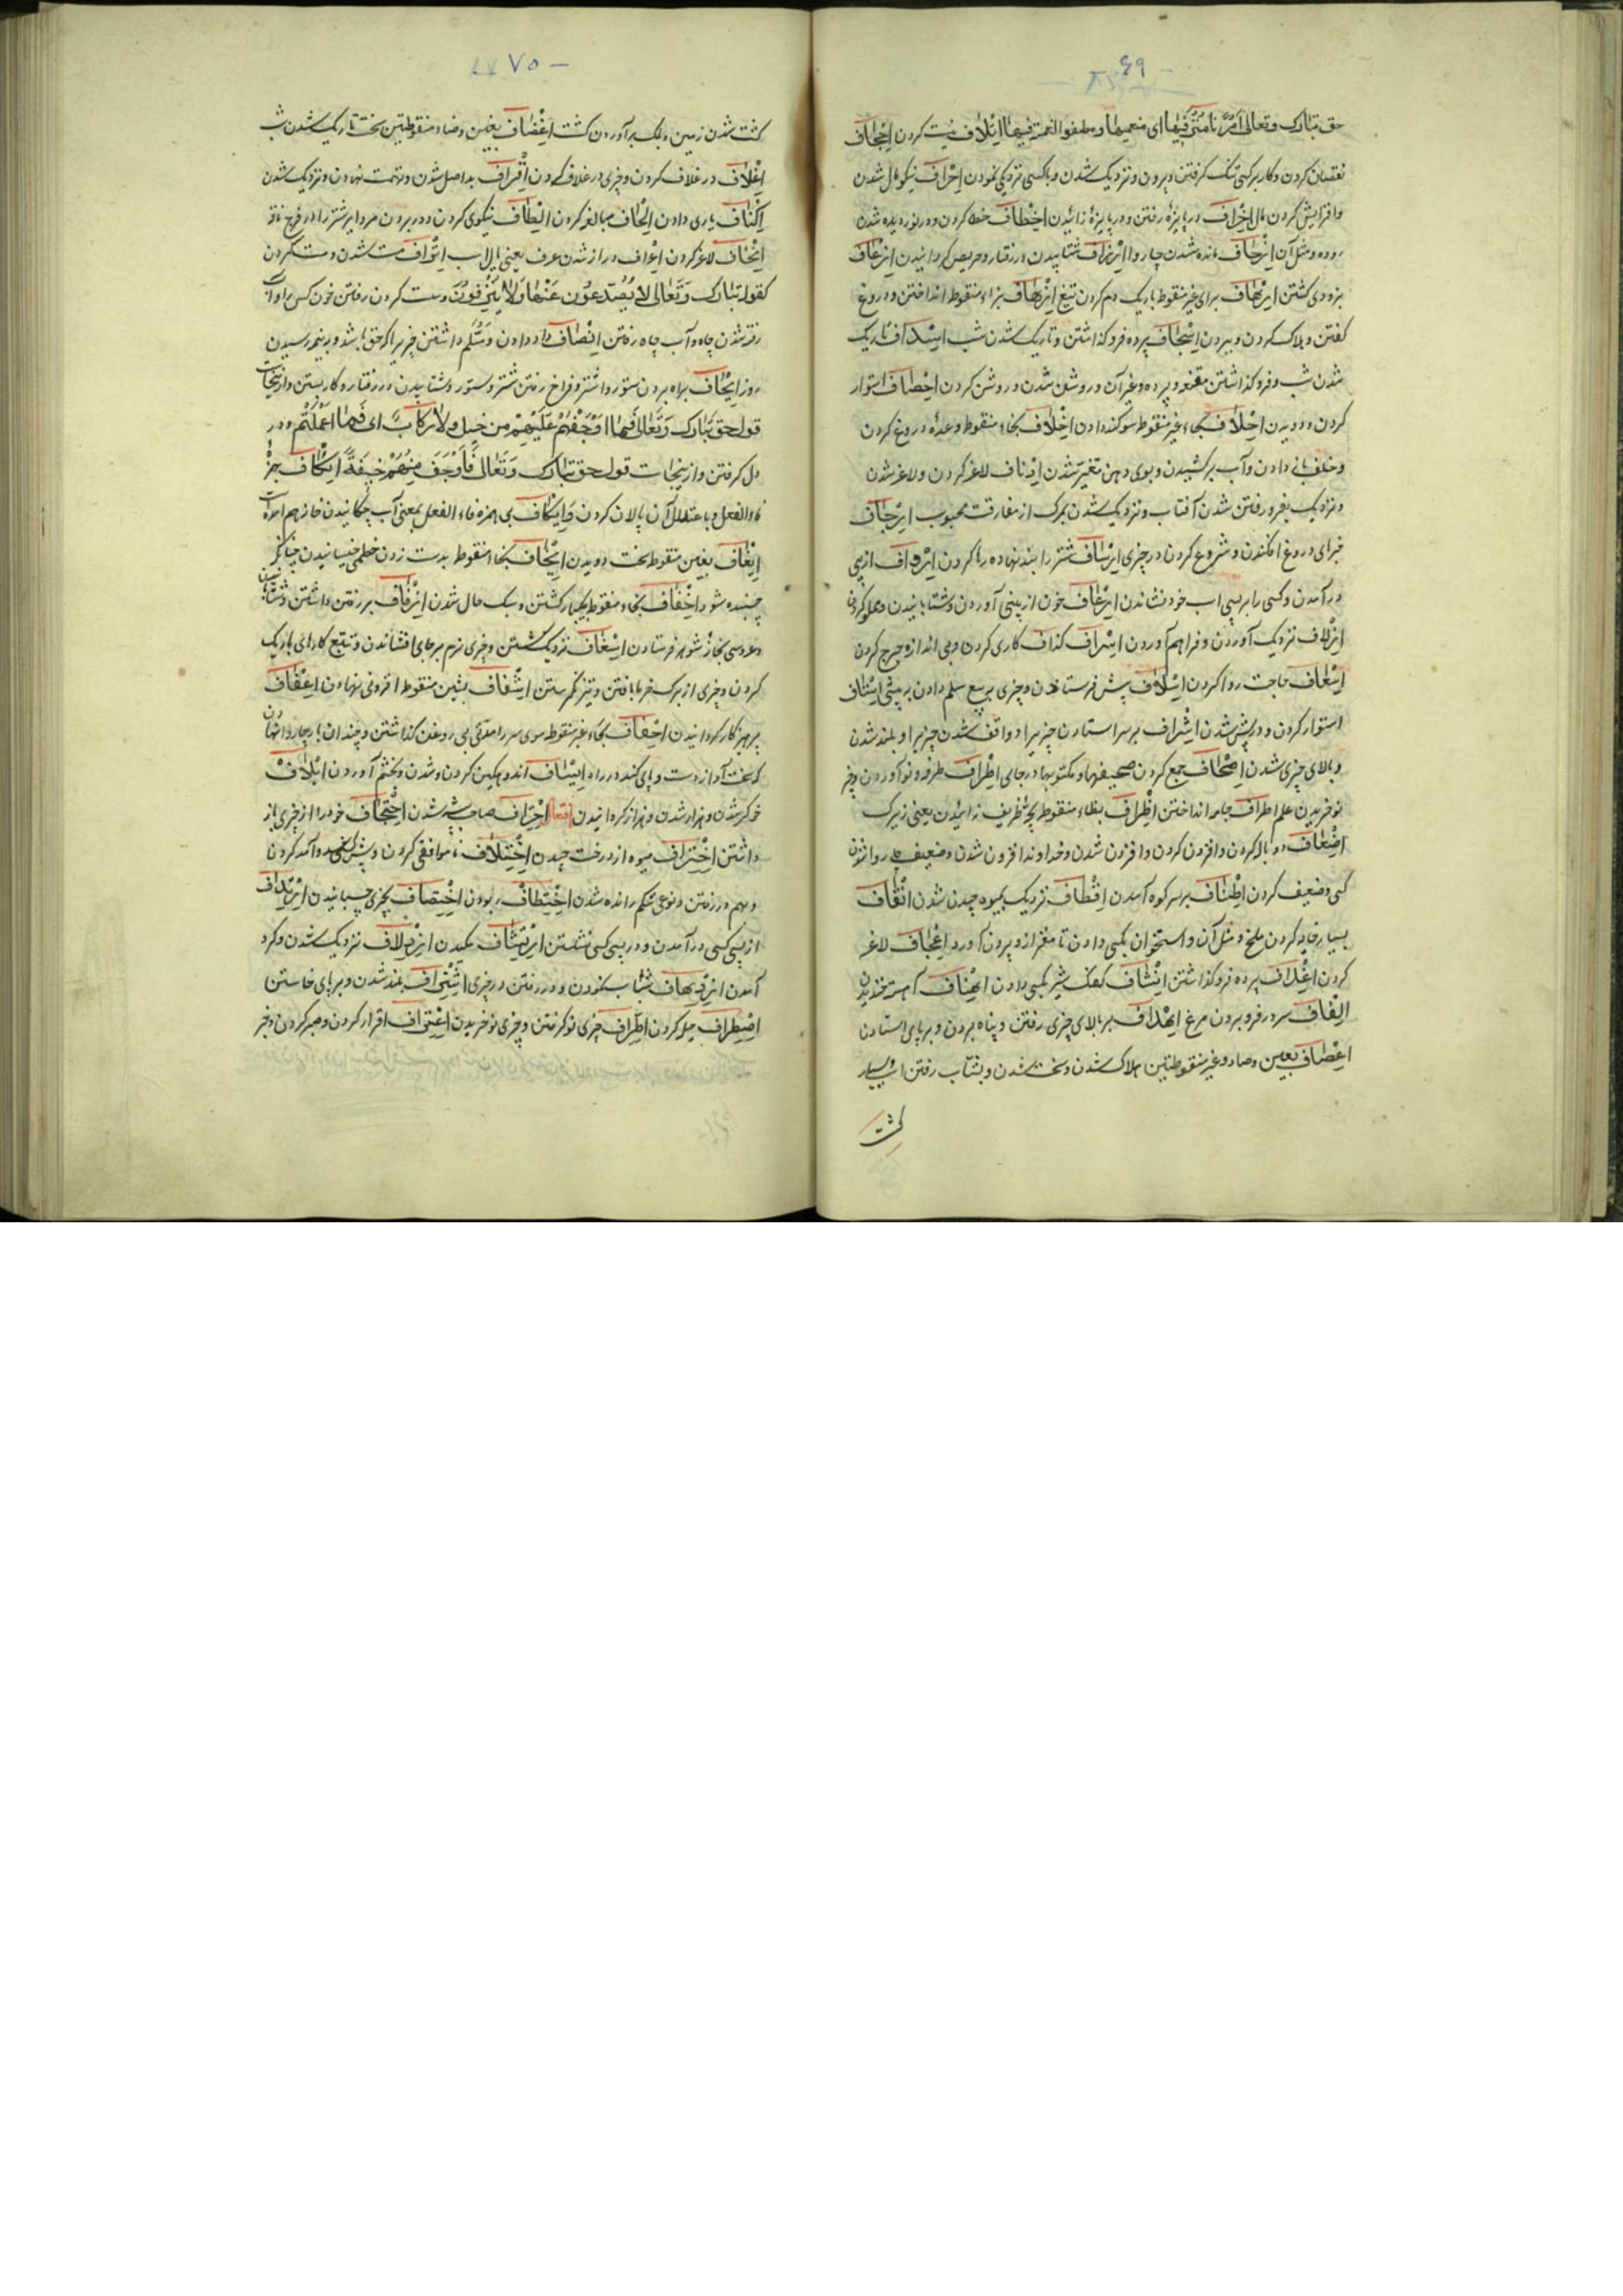 ۶۹
حق تبارک وتعالی امرنا مترفیها ای منعمیها ایلاف کردن اجحاف
نقصان کردن وکار بر کسی تنک کرفتن وبردن ونزدیک شدن وباکسی نزدیکی نمودن احراف نیکو مال شدن
وافزایش کردن مال اخراف در پاییز رفتن ودر پاییز زائیدن اخطاف خطا کردن
ومثل آن ازحاف مانده شدن چاروا ازراف شتابیدن در رفتار وحریص کردانیدن ازعاف
بزودی کشتن ارهاف برای غیر منقوط باریک دم کردن تیغ ازهاف بزاء منقوط انداختن ودروغ
کفتن وهلاک کردن وبردن اسجاف پرده فرو کذاشتن وتاریک شدن شب اسداف تاریک
شدن شب وفرو کذاشتن مقنعه وپرده وغیر آن وروشن شدن وروشن کردن احصاف استوار
کردن ودویدن احلاف بحاء غیر منقوط سوکند دادن اخلاف بخاء منقوط وعده دروغ کردن
وخلف دادن وآب برکشیدن وبوی دهن متغیر شدن ادناف لاغر کردن ولاغر شدن
ونزدیک بفرو رفتن شدن آفتاب ونزدیک شدن بمرک از مفارقت محبوب ارجاف
خبرای دروغ افکندن وشروع کردن در چیزی ارساف شتر را بند نهاده رها کردن ارداف از پی
در آمدن وکسی را بر پس اسب خود نشاندن ارعاف خون از بینی آوردن وشتابانیدن
ازلاف نزدیک آوردن وفراهم آوردن اسراف کذاف کاری کردن وبی اندازه خرج کردن
اسعاف حاجت روا کردن اسلاف پیش فرستادن وچیزی به بیع سلم دادن
استوار کردن ودرپیش شدن اشراف بر سر استادن چیزیرا وواقف شدن چیزیرا وبلند شدن
وبالای چیزی شدن اصحاف جمع کردن صحیفها ومکتوبها در جایی اطراف
نو خریدن علم اطراف جامه انداختن اظراف بظاء منقوط بچه ظریف زائیدن یعنی زیرک
اضعاف دوباله کردن وافزون کردن وافزون شدن وخداوند افزون شدن وضعیف
کسی وضعیف کردن اطناف بر سر کوه آمدن اقطاف نزدیک بمیوه چیدن شدن انقاف
کردن ملخ ومثل آن واستخوان بکسی دادن تا مغز ازو بیرون آورد اعجاف لاغر
کردن اغداف پرده فرو کذاشتن انشاف کفک شیر بکسی دادن اهناف آهسته خندیدن
الفاف سر در فرو بردن مرغ اهداف بر بالای چیزی رفتن وپناه بردن وبر پای استادن
اعصاف بعین وصاد غیر منقوطتین هلاک شدن وسخت شدن وبشتاب رفتن
کشت
۷۵
کشت شدن زمین وبرک بر آوردن کشت اغضاف بغین وضاد منقوطتین سخت تاریک شدن شب
اغلاف در غلاف کردن وچیزی در غلاف کردن اقراف بد اصل شدن وتهمت نهادن ونزدیک شدن
اکناف یاری دادن الحاف مبالغه کردن الطاف نیکوی کردن ودر بردن مرد
انحاف لاغر کردن دراز شدن عرف یعنی اتراف مست شدن ومست کردن
کقوله تبارک وتعالی لا یصدعون عنها ولا ینزفون وسست کردن رفتن خون کس را وآب
رفته شدن چاه وآب چاه رفتن انصاف داد دادن ومسلم داشتن چیزیرا که حق باشد وبنیمه رسیدن
روز ایجاف براه بردن ستور واشتر وفراخ رفتن شتر وستور وشتابیدن در رفتار وکار بستن وازینجاست
قول حق تبارک وتعالی فما اوجفتم علیهم من خیل ولا رکاب ای فما اعملتم ودر
دل کرفتن وازینجاست قول حق تبارک وتعالی فاوجف منهم خیفة ایکاف بهمزه
فاء الفعل وباعتلال آن پالان کردن وایکاف بی همزه فاء الفعل بمعنی آب چکانیدن خانه هم آمده است
ایغاف بغین منقوط سخت دویدن ایخاف بخاء منقوط بدست زدن خطمی خیسانیدن چنانکه
چسبنده شود اخفاف بخاء منقوط سبکبار کشتن وسبک حال شدن ازفاف بر رفتن داشتن وشتابانیدن
وعروس بخانه شوهر فرستادن اسفاف نزدیک کشتن وچیزی نرم بر جای افشاندن وتتبع کارای باریک
کردن وچیزی از برک خرما بافتن وتیز نکریستن اشفاف بشین منقوط افزونی نهادن اعفاف
پرهیزکار کردانیدن احفاف بحاء غیر منقوط موی سر را مدتی بی روغن کذاشتن وچندان
که سخت آواز دست وپای کند در راه ایساف اندوهکین کردن وشدن وبخشم آوردن ایلاف
خوکر شدن وهزار شدن وهزار کردانیدن افتعال احتراف صاحب پیشه شدن احتجاف خود را از چیزی باز
داشتن اختراف میوه از درخت چیدن اختلاف ناموافقی کردن وآمد کردن
وبهم در رفتن ونوعی شکم رانده شدن اختطاف ربودن اختصاف بچیزی چسبانیدن ارتداف
از پس کسی در آمدن ودر پس کسی نشستن ارتشاف مکیدن ازدلاف نزدیک شدن وکرد
آمدن ازدهاف شتاب نمودن ودر رفتن در چیزی اشتراف بلند شدن وبر پای خاستن
اضطراف میل کردن اطراف چیزی نو کرفتن وچیزی نو خریدن اعتراف اقرار کردن وصبر کردن وخبر